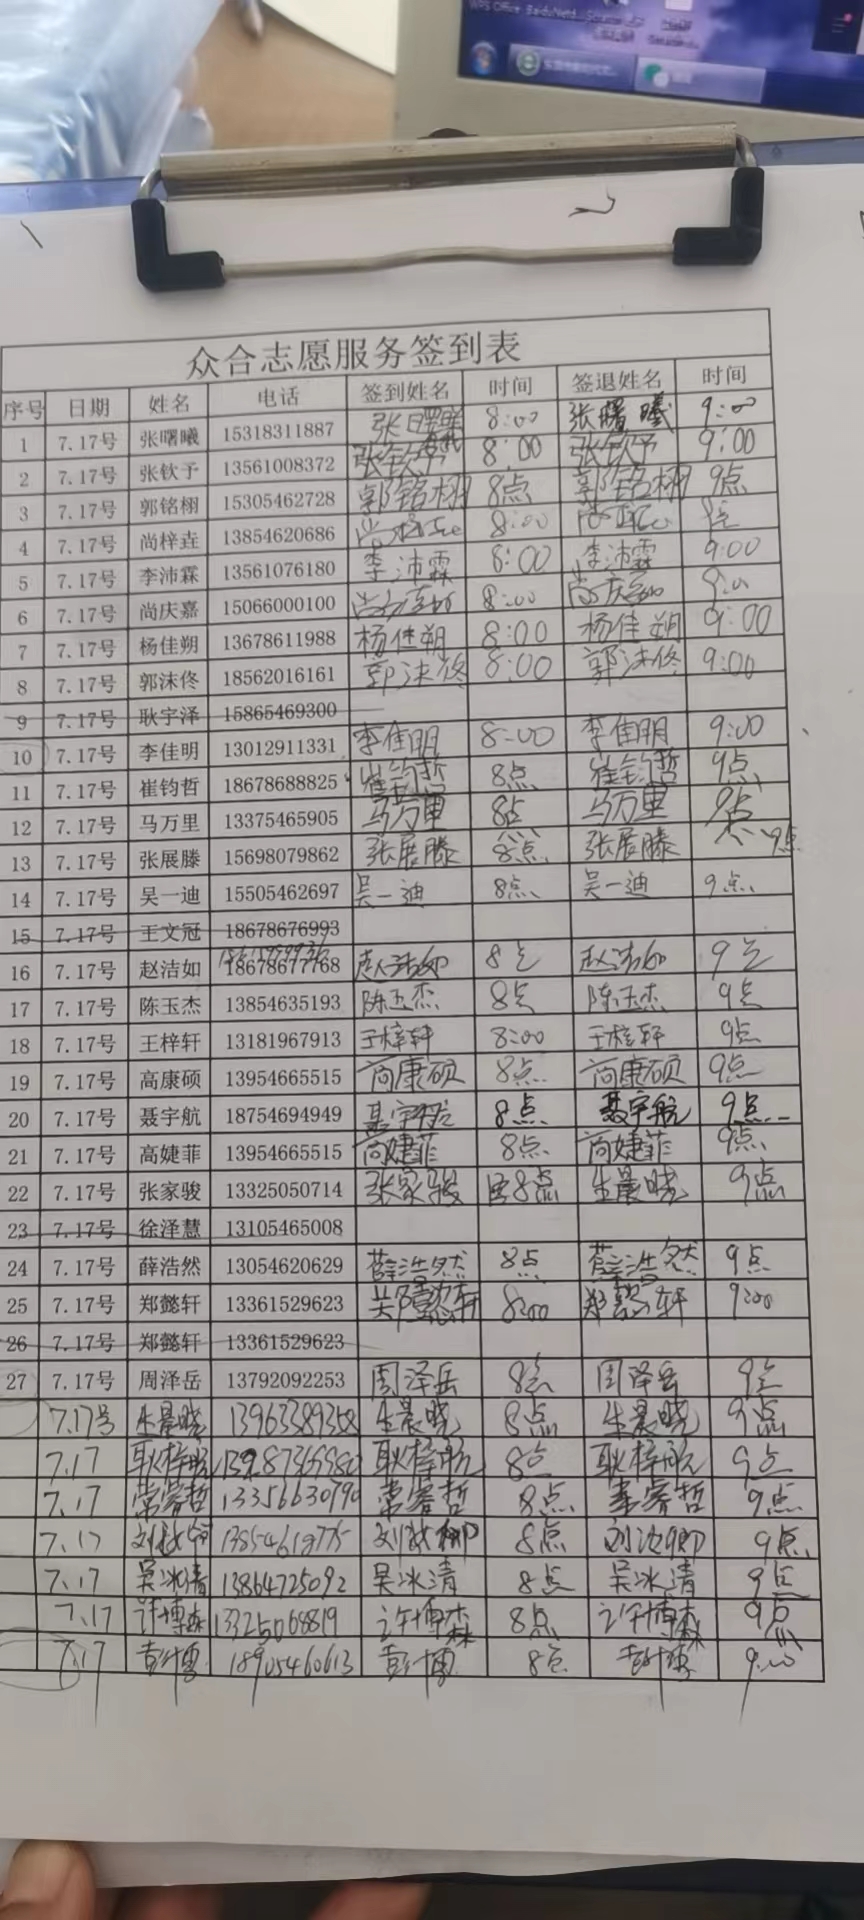 WPS Office
众合志愿服务签到表
序号 日期 姓名 电话 签到姓名 时间 签退姓名 时间
1 7.17号 张曙曦 15318311887 8:00 张曙曦 9:00
2 7.17号 张钦予 13561008372 张钦予 8:00 张钦予 9:00
3 7.17号 郭铭栩 15305462728 郭铭栩 8点 郭铭栩 9点
4 7.17号 尚梓垚 13854620686 8:00
5 7.17号 李沛霖 13561076180 李沛霖 8:00 李沛霖 9:00
6 7.17号 尚庆嘉 15066000100 8:00 尚庆嘉
7 7.17号 杨佳朔 13678611988 杨佳朔 8:00 杨佳朔 9:00
8 7.17号 郭沫佟 18562016161 郭沫佟 8:00 郭沫佟 9:00
9 7.17号 耿宇泽 15865469300
10 7.17号 李佳明 13012911331 李佳明 8:00 李佳明 9:00
11 7.17号 崔钧哲 18678688825 崔钧哲 8点 崔钧哲 9点
12 7.17号 马万里 13375465905 马万里 8点 马万里 9点
13 7.17号 张展滕 15698079862 张展滕 8点 张展滕 9点
14 7.17号 吴一迪 15505462697 吴一迪 8点 吴一迪 9点
15 7.17号 王文冠 18678676993
16 7.17号 赵洁如 18678677768 赵洁如 8点 赵洁如 9点
17 7.17号 陈玉杰 13854635193 陈玉杰 8点 陈玉杰 9点
18 7.17号 王梓轩 13181967913 王梓轩 8:00 王梓轩 9点
19 7.17号 高康硕 13954665515 高康硕 8点 高康硕 9点
20 7.17号 聂宇航 18754694949 聂宇航 8点 聂宇航 9点
21 7.17号 高婕菲 13954665515 高婕菲 8点 高婕菲 9点
22 7.17号 张家骏 13325050714 张家骏 8点 生晨晓 9点
23 7.17号 徐泽慧 13105465008
24 7.17号 薛浩然 13054620629 薛浩然 8点 薛浩然 9点
25 7.17号 郑懿轩 13361529623 8:00 郑懿轩 9:00
26 7.17号 郑懿轩 13361529623
27 7.17号 周泽岳 13792092253 周泽岳 8点 周泽岳 9点
7.17号 生晨晓 生晨晓 8点 生晨晓 9点
7.17 耿梓航 耿梓航 8点 耿梓航 9点
7.17 常睿哲 常睿哲 8点 9点
7.17 8点 9点
7.17 吴冰清 13864725092 吴冰清 8点 吴冰清 9点
7.17 许博森 13325068819 许博森 8点 许博森 9点
7.17 18905460613 8点 9:00